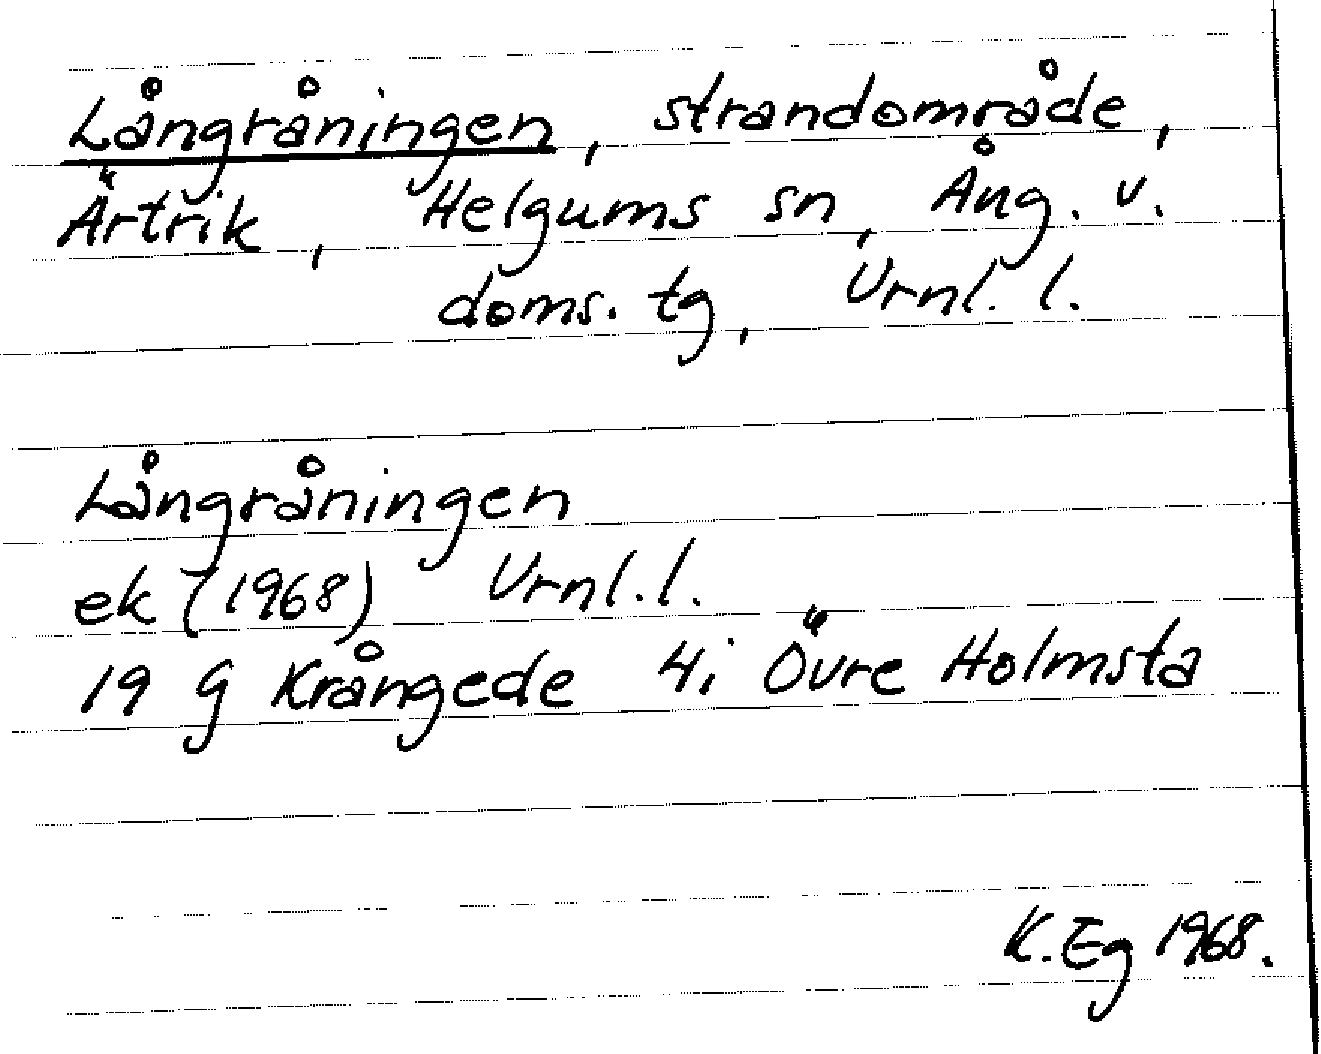 Långråningen, strandområde,
Ärtrik, Helgums sn, Ång. v.
doms. tg, Vrnl. l.
Långråningen
ek (1968) Vrnl. l.
19 G Krångede 4i Övre Holmsta
K. Eg 1968.